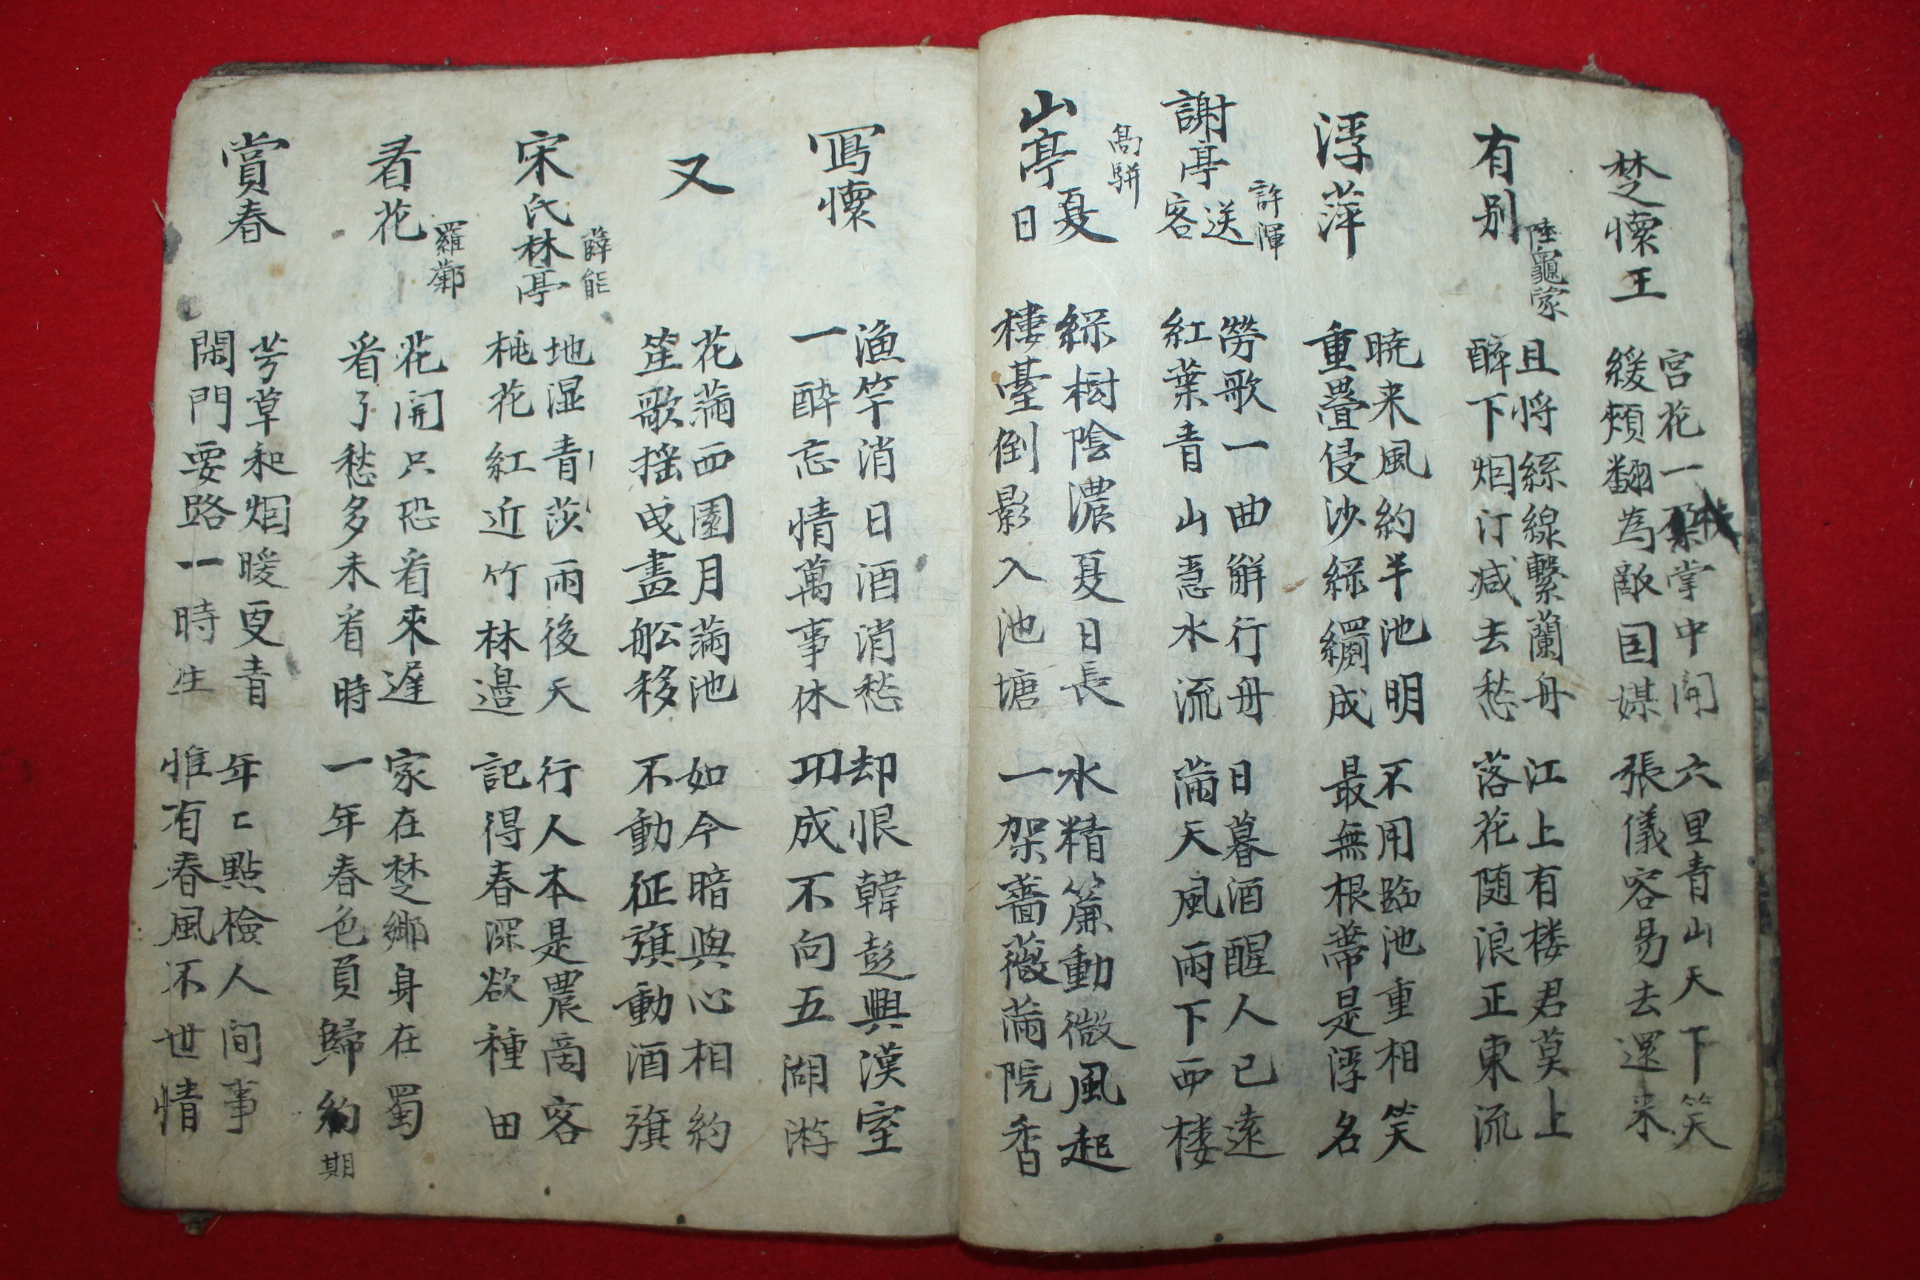 楚懷王
宮花一朶掌中開
緩頰翻為敵国媒
六里青山天下笑
張儀容易去還来
有別
陸龜蒙
且将絲線繫蘭舟
醉下烟汀减去愁
江上有楼君莫上
落花随浪正東流
浮萍
晓来風約半池明
重疊侵沙綠罽成
不用臨池重相笑
最無根蔕是浮名
謝亭送客
許渾
勞歌一曲觧行舟
紅葉青山急水流
日暮酒醒人已遠
滿天風雨下西楼
山亭夏日
高騈
綠樹陰濃夏日長
樓臺倒影入池塘
水精簾動微風起
一架薔薇滿院香
寫懷
漁竿消日酒消愁
一酔忘情萬事休
却恨韓彭興漢室
功成不向五湖游
又
花滿西園月滿池
笙歌揺曳畫舩移
如今暗與心相約
不動征旗動酒旗
宋氏林亭
薛能
地湿青莎雨後天
桃花紅近竹林邉
行人本是農商客
記得春深欲種田
看花
羅鄴
花開只恐看來遲
看了愁多未看時
家在楚鄉身在蜀
一年春色負歸約期
賞春
芳草和烟暖更青
閑門要路一時生
年〻點檢人间事
惟有春風不世情